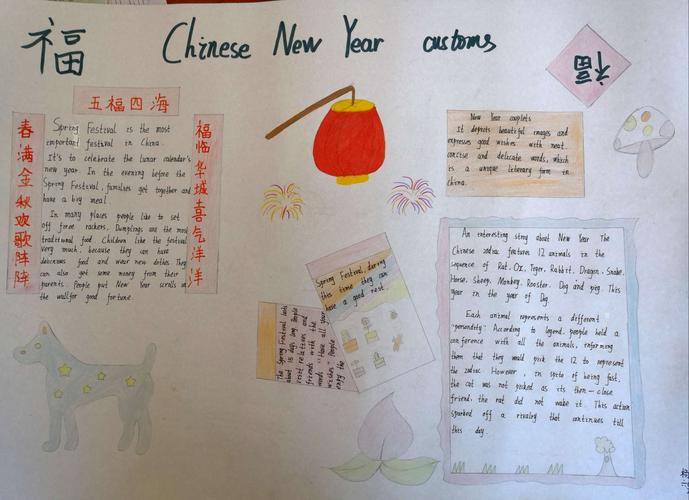 福
Chinese New Year customs
福
五福四海
春满金秋欢歌阵阵
福临华城喜气洋洋
Spring Festival is the most
important festival in China.
It's to celebrate the lunar calendar's
new year. In the evening before the
Spring Festival, families get together and
have a big meal.
In many places people like to set
off fire crackers. Dumplings are the most
traditional food Children like the festival
very much, because they can have
delicious food and wear new clothes. They
can also get some money from their
parents. People put New Year scrolls on
the wall for good fortune.
New Year couplets
It depicts beautiful images and
expresses good wishes with neat.
concise and delicate words, which
is a unique literary form in
China.
Spring Festival, during
this time they can
have a good rest.
The Spring Festival lasts
about 15 days long. People
visit relatives and
friends with the
words "Have all your
wishes" People
enjoy the
An interesting story about New Year The
Chinese zodiac features 12 animals in the
sequence of Rat, Ox, Tiger, Rabbit, Dragon, Snake,
Horse, Sheep, Monkey, Rooster, Dog and pig. This
year in the year of Dog.
Each animal represents a different
"personality". According to legend, people held a
conference with all the animals, informing
them that they would pick the 12 to represent
the zodiac. However, in spite of being fast,
the cat was not picked as its then-close
friend, the rat did not wake it. This action
sparked off a rivalry that continues till
this day.